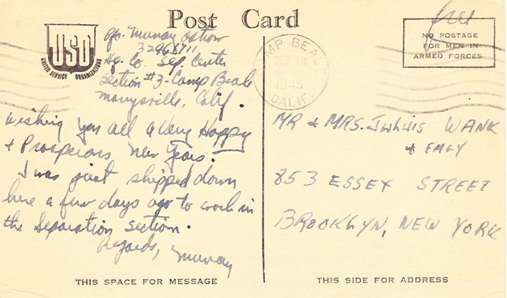 Post Card
free
NO POSTAGE
FOR MEN IN
ARMED FORCES
USO
UNITED SERVICE ORGANIZATIONS
Murray
32968711
Hq. Co. Sep. Center
Section #3-Camp Beale
Marysville, Calif.
CAMP BEALE
SEP 10
1945
CALIF.
Wishing you all a Very Happy
+ Prosperous New Years.
I was just shipped down
here a few days ago to work in
the Separation section.
Regards,
Murray
MR + MRS. WANK
+ FMLY
853 ESSEX STREET
BROOKLYN, NEW YORK
THIS SPACE FOR MESSAGE
THIS SIDE FOR ADDRESS